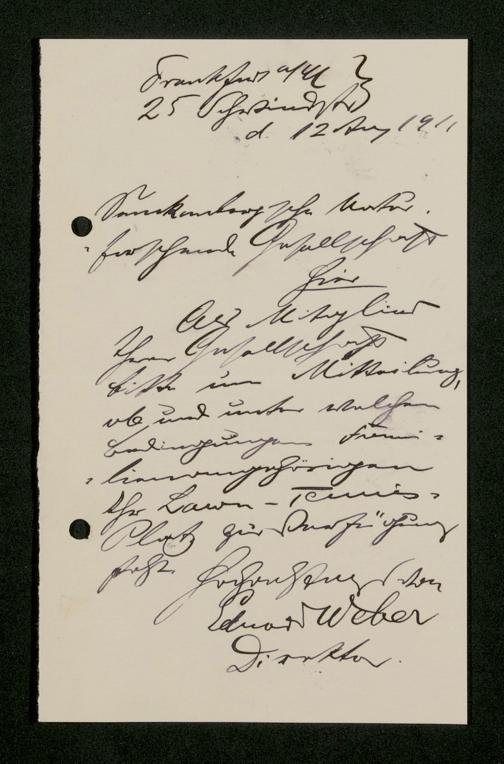 Frankfurt a/M
25 Schwindstr
d. 12 Aug 1911
Senckenbergische Natur-
forschende Gesellschaft
hier
Als Mitglied
Ihrer Gesellschaft
bitte um Mitteilung,
ob und unter welchen
Bedingungen Fami-
lienangehörigen
Ihr Lawn-Tennis-
Platz zur Verfügung
steht.
Hochachtungsvoll
Eduard Weber
Direktor.